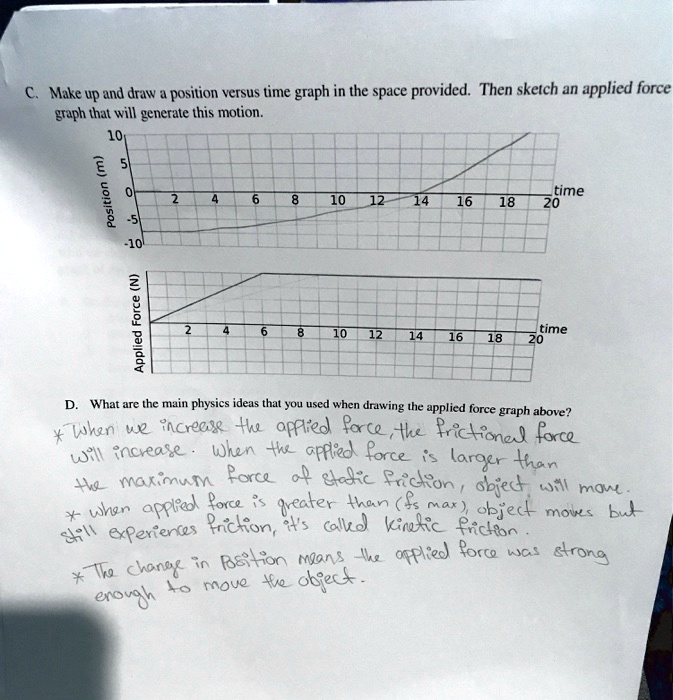 C. Make up and draw a position versus time graph in the space provided. Then sketch an applied force
graph that will generate this motion.
10
5
0
-5
-10
Position (m)
2 4 6 8 10 12 14 16 18 20
time
Applied Force (N)
2 4 6 8 10 12 14 16 18 20
time
D. What are the main physics ideas that you used when drawing the applied force graph above?
* When we increase the applied force, the frictional force
will increase. When the applied force is larger than
the maximum force of static friction, object will move.
* when applied force is greater than (fs max), object moves but
still experiences friction, it's called kinetic friction.
* The change in position means the applied force was strong
enough to move the object.